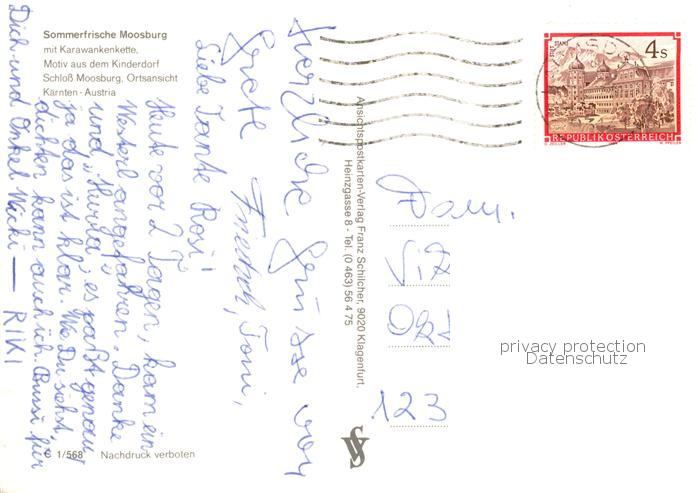 Sommerfrische Moosburg
mit Karawankenkette,
Motiv aus dem Kinderdorf
Schloß Moosburg, Ortsansicht
Kärnten - Austria
Liebe Tante Rosi!
Heute vor 2 Tagen, kam ein
angefahren. Danke
und "Hurra", es paßt genau,
ja das ist klar. Wie Du siehst,
dichten kann auch ich. Bussi für
Dich und Onkel
RIKI
Herzliche Grüsse von
Toni,
C 1/568 Nachdruck verboten
Ansichtspostkarten-Verlag Franz Schilcher, 9020 Klagenfurt,
Heinzgasse 8 - Tel. (0 463) 56 4 75
STIFT STAMS
4 S
REPUBLIK ÖSTERREICH
O. ZEILLER W. PFEILER
123
privacy protection
Datenschutz